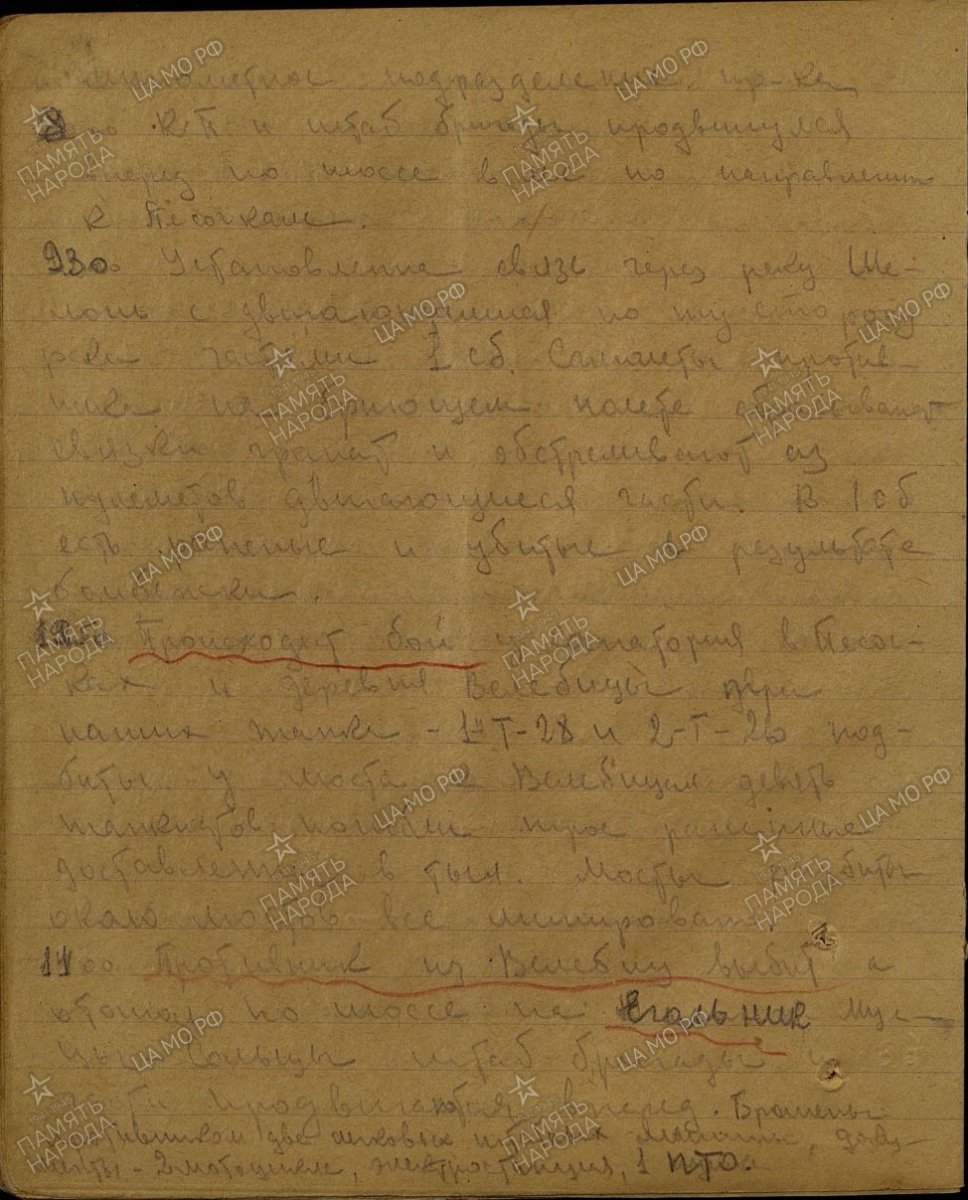 минометное подразделение пр-ка
КП и штаб бригады продвинулся
вперед по шоссе по направлению
к Песочкам.
9 30 Установлена связь через реку Ше-
лонь с двигающимися по ту сторону
реки частями 1 сб. Самолеты против-
ника на бреющем полете сбрасывают
связки гранат и обстреливают из
пулеметов двигающиеся части. В 1 сб
есть раненые и убитые в результате
бомбежки.
Происходит бой санатория в Песоч-
ках и деревня Велебицы три
наших танка - 1 Т-28 и 2-Т-20 под-
биты. У моста в Велебицах девять
танкистов погибли трое раненые
доставлены в тыл. Мосты
около мостов все минировано
Противник из Велебиц выбит и
отошел по шоссе на Егольник
Сольцы штаб бригады и
части продвигаются вперед. Брошены
противником два легковых машины, доку-
менты - 2 мотоцикла, электростанция, 1 ПТО.
ПАМЯТЬ НАРОДА
ЦАМО.РФ